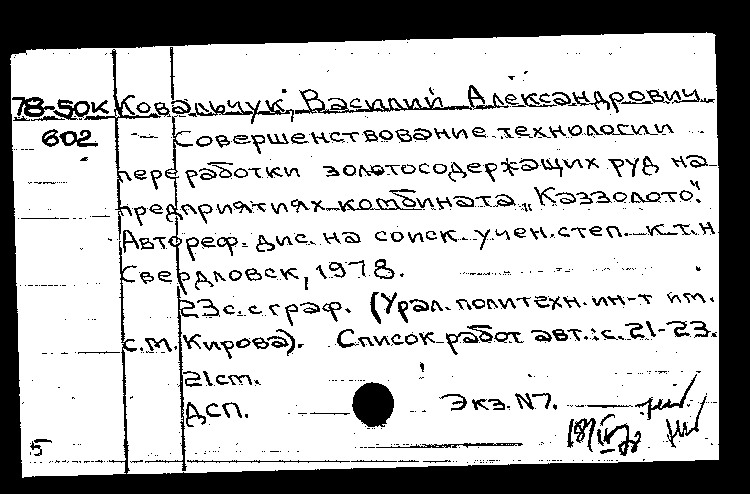 78-50к Ковальчук, Василий Александрович
602 Совершенствование технологии
переработки золотосодержащих руд на
предприятиях комбината „Каззолото".
Автореф. дис. на соиск. учен. степ. к.т.н
Свердловск, 1978.
23с. с граф. (Урал. политехн. ин-т им.
с.м. Кирова). Список работ авт.: с. 21-23.
21см.
ДСП. Экз. N7.
5